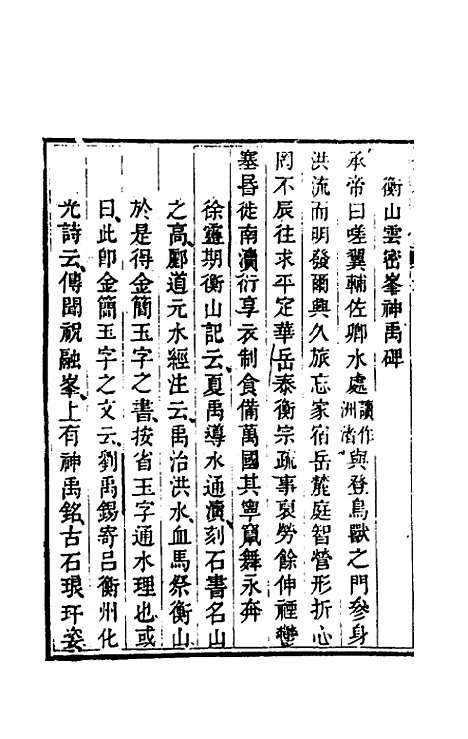 衡山雲密峯神禹碑
承帝曰嗟翼輔佐卿水處讀作洲渚與登鳥獸之門參身
洪流而明發爾興久旅忘家宿岳麓庭智營形折心
罔不辰往求平定華岳泰衡宗疏事裒勞餘伸禋鬱
塞昏徙南瀆衍亨衣制食備萬國其寧竄舞永奔
徐靈期衡山記云夏禹導水通瀆刻石書名山
之高酈道元水經注云禹治洪水血馬祭衡山
於是得金簡玉字之書按省玉字通水理也或
曰此卽金簡玉字之文云劉禹錫寄呂衡州化
光詩云傳聞祝融峯上有神禹銘古石琅玕姿